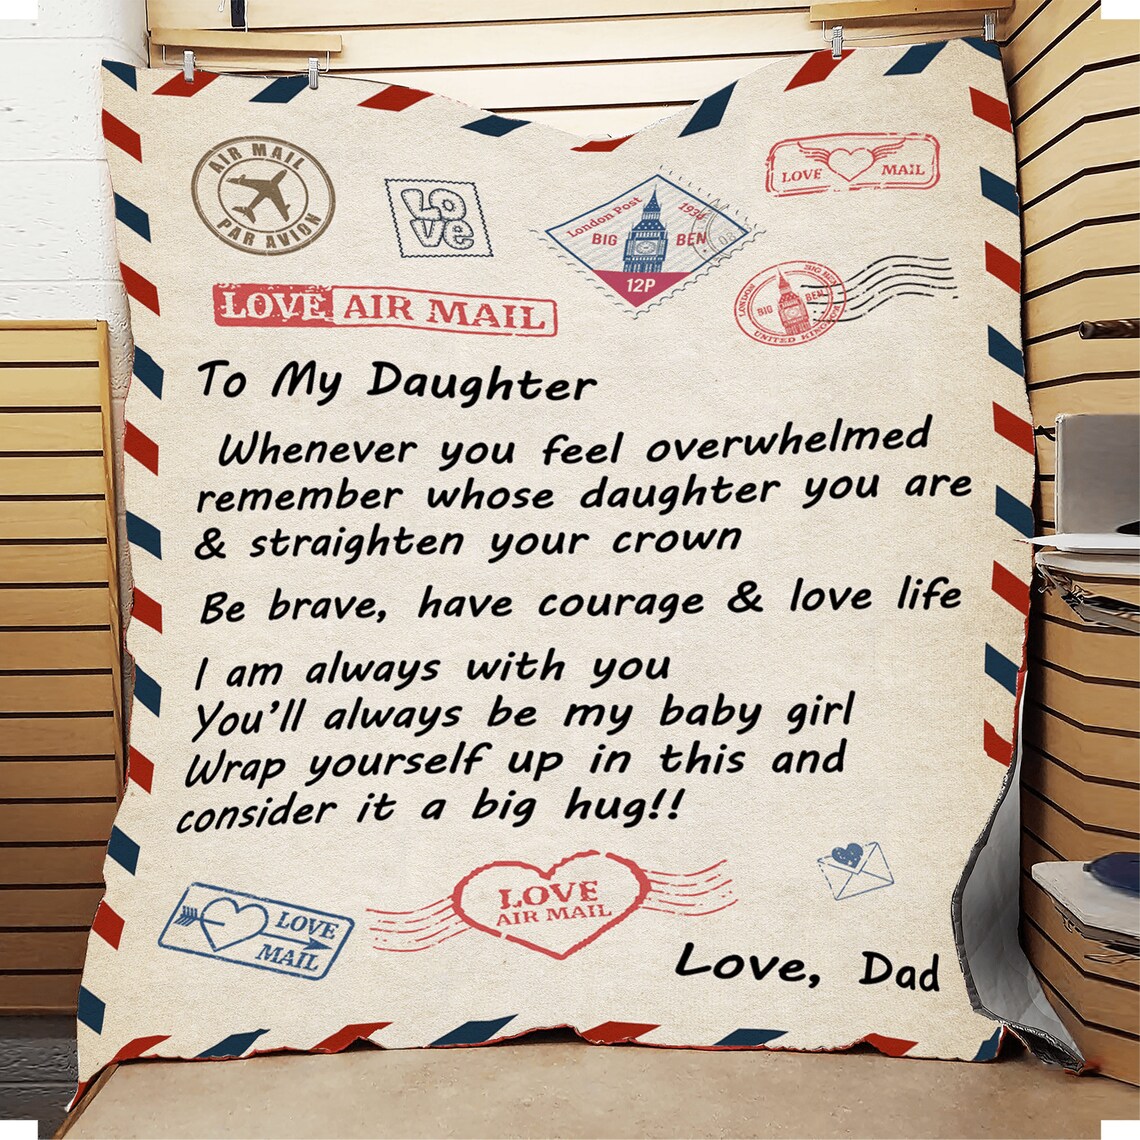 AIR MAIL
PAR AVION
LO
VE
London Post
1936
BIG BEN
12P
LOVE MAIL
LONDON
BIG BEN
BIG BEN
UNITED KINGDOM
LOVE AIR MAIL
To My Daughter
Whenever you feel overwhelmed
remember whose daughter you are
& straighten your crown
Be brave, have courage & love life
I am always with you
You'll always be my baby girl
Wrap yourself up in this and
consider it a big hug!!
LOVE
MAIL
LOVE
AIR MAIL
Love, Dad